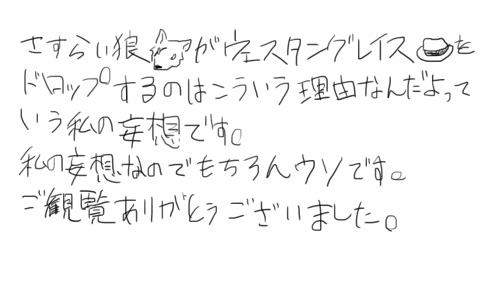 さすらい狼がウェスタングレイスを
ドロップするのはこういう理由なんだよって
いう私の妄想です。
私の妄想なのでもちろんウソです。
ご観覧ありがとうございました。